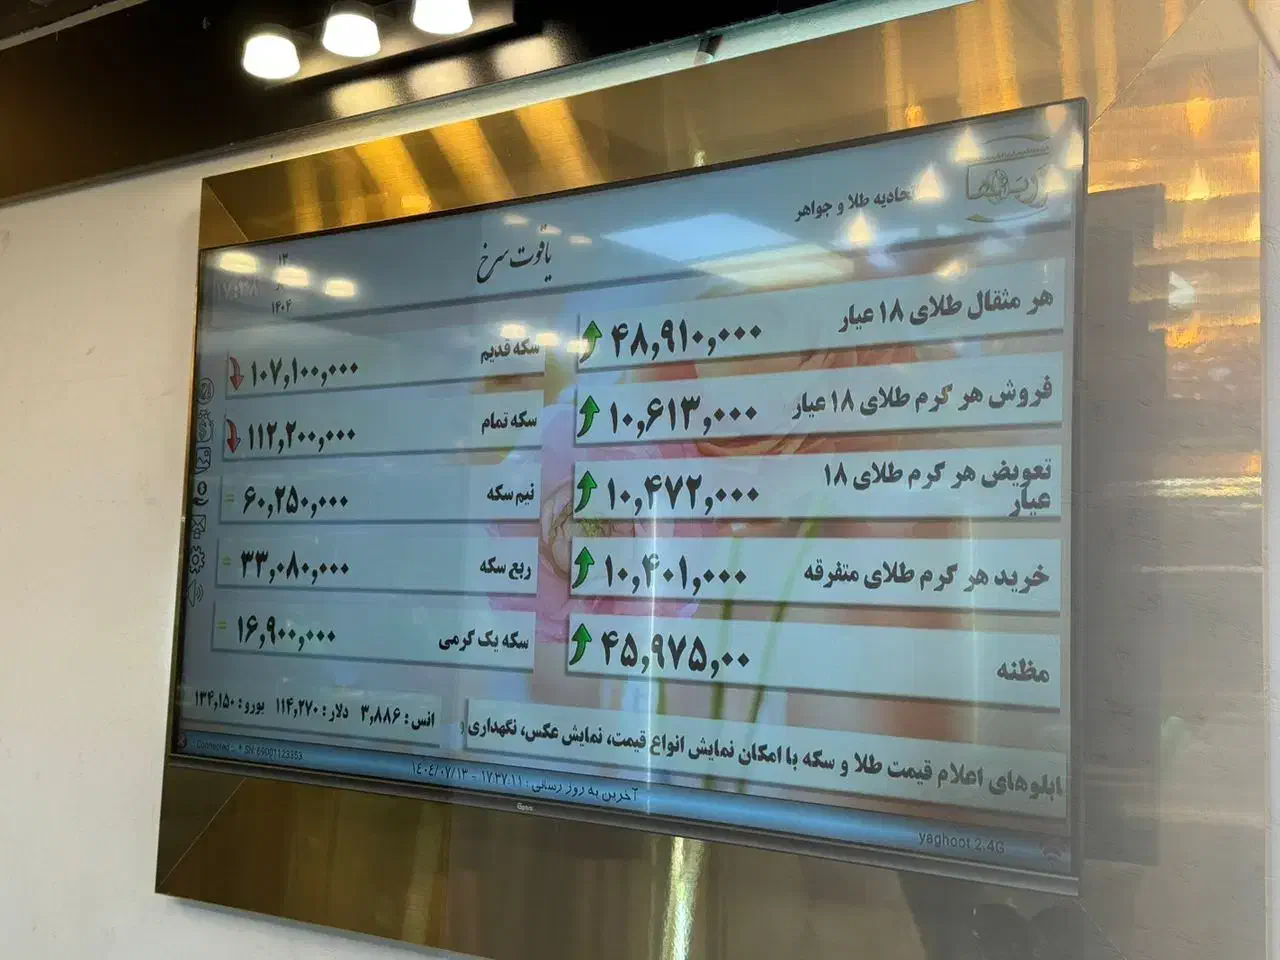 اتحادیه طلا و جواهر
یاقوت سرخ
۱۳
۱۴۰۴
هر مثقال طلای ۱۸ عیار ۴۸,۹۱۰,۰۰۰
فروش هر گرم طلای ۱۸ عیار ۱۰,۶۱۳,۰۰۰
تعویض هر گرم طلای ۱۸
عیار ۱۰,۴۷۲,۰۰۰
خرید هر گرم طلای متفرقه ۱۰,۴۰۱,۰۰۰
مظنه ۴۵,۹۷۵,۰۰
سکه قدیم ۱۰۷,۱۰۰,۰۰۰
سکه تمام ۱۱۲,۲۰۰,۰۰۰
نیم سکه ۶۰,۲۵۰,۰۰۰ =
ربع سکه ۳۳,۰۸۰,۰۰۰ =
سکه یک گرمی ۱۶,۹۰۰,۰۰۰ =
ابلوهای اعلام قیمت طلا و سکه با امکان نمایش انواع قیمت، نمایش عکس، نگهداری و
انس : ۳,۸۸۶ دلار : ۱۱۴,۲۷۰ یورو : ۱۳۴,۱۵۰
Connected : * SN: 69001123353
آخرین به روز رسانی : ۱۷:۳۷:۱۱ - ۱۴۰۴/۰۷/۱۳
yaghoot 2.4G